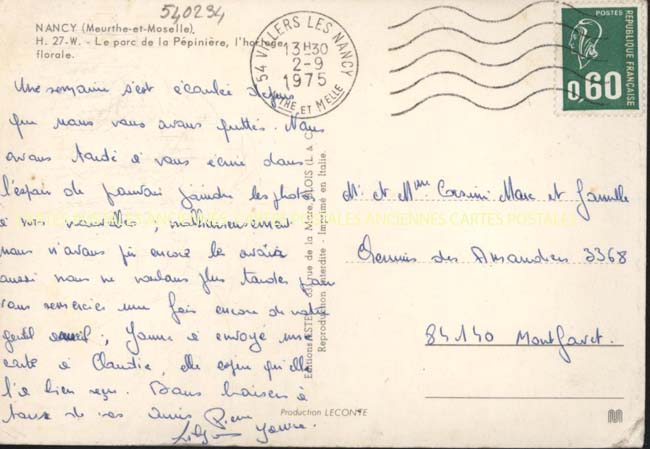 540294
NANCY (Meurthe-et-Moselle)
H. 27-W. - Le parc de la Pépinière, l'horloge
florale.
54 VILLERS LES NANCY
13H30
2-9
1975
MTHE ET MELLE
POSTES
REPUBLIQUE FRANÇAISE
0,60
Une semaine s'est écoulée depuis
que nous vous avons quittés. Nous
avons tardé à vous écrire dans
l'espoir de pouvoir joindre les photos
à nos nouvelles, malheureusement
nous n'avons pu encore les avoir
aussi nous ne voulons plus tarder pour
vous remercier une fois encore de votre
gentil accueil, Yanne a envoyé une
carte à Claudie, elle espère qu'elle
l'a bien reçu. Bons baisers à
tous de vos amis Pierre
Yanne.
Mr et Mme Marc et famille
des Amandiers 3368
84140 Montfavet.
CARTES POSTALES ANCIENNES CARTES POSTALES
Editions ESTEL - rue de la Mare, BLOIS (L. & C.)
Reproduction interdite - Imprimé en Italie.
Production LECONTE